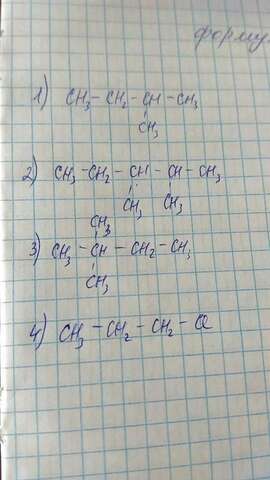 форму
1) CH₃-CH₂-CH-CH₃
CH₃
2) CH₃-CH₂-CH-CH-CH₃
CH₃ CH₃
CH₃
3) CH₃-CH-CH₂-CH₃
CH₃
4) CH₃-CH₂-CH₂-Cl